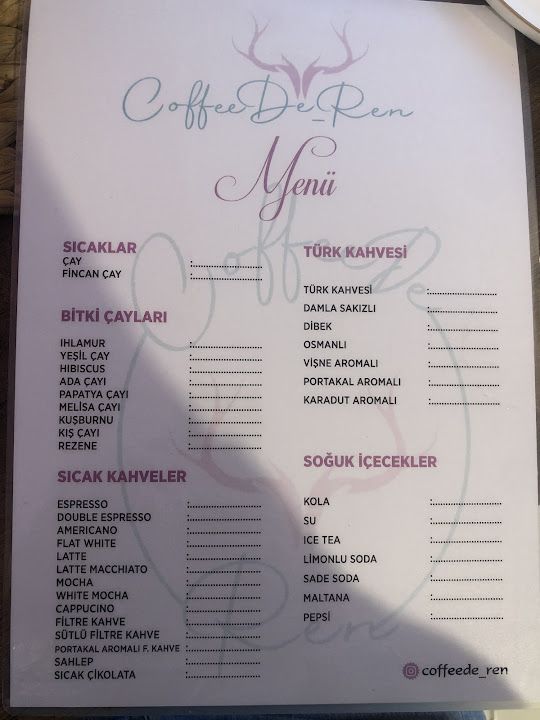 CoffeeDe_Ren
Menü
SICAKLAR
ÇAY :....................
FİNCAN ÇAY :....................
BİTKİ ÇAYLARI
IHLAMUR :....................
YEŞİL ÇAY :....................
HIBISCUS :....................
ADA ÇAYI :....................
PAPATYA ÇAYI :....................
MELİSA ÇAYI :....................
KUŞBURNU :....................
KIŞ ÇAYI :....................
REZENE :....................
SICAK KAHVELER
ESPRESSO :....................
DOUBLE ESPRESSO :....................
AMERICANO :....................
FLAT WHITE :....................
LATTE :....................
LATTE MACCHIATO :....................
MOCHA :....................
WHITE MOCHA :....................
CAPPUCINO :....................
FİLTRE KAHVE :....................
SÜTLÜ FİLTRE KAHVE :....................
PORTAKAL AROMALI F. KAHVE :....................
SAHLEP :....................
SICAK ÇİKOLATA :....................
TÜRK KAHVESİ
TÜRK KAHVESİ :....................
DAMLA SAKIZLI :....................
DİBEK :....................
OSMANLI :....................
VİŞNE AROMALI :....................
PORTAKAL AROMALI :....................
KARADUT AROMALI :....................
SOĞUK İÇECEKLER
KOLA :....................
SU :....................
ICE TEA :....................
LİMONLU SODA :....................
SADE SODA :....................
MALTANA :....................
PEPSİ :....................
coffeede_ren
CoffeeDe
Ren